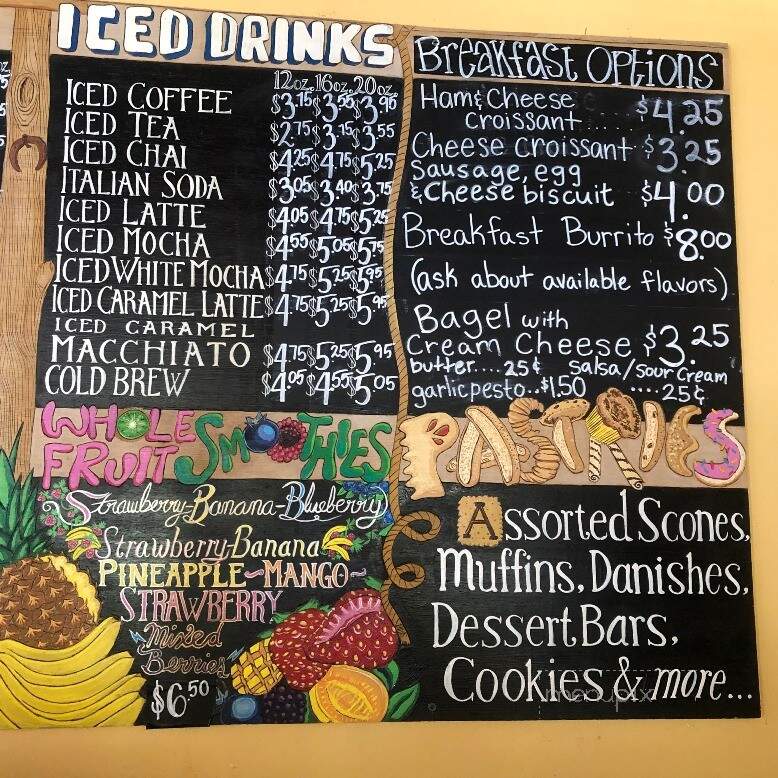 ICED DRINKS
12oz. 16oz. 20oz.
ICED COFFEE $3.15 $3.55 $3.95
ICED TEA $2.75 $3.15 $3.55
ICED CHAI $4.25 $4.75 $5.25
ITALIAN SODA $3.05 $3.40 $3.75
ICED LATTE $4.05 $4.75 $5.25
ICED MOCHA $4.55 $5.05 $5.75
ICED WHITE MOCHA $4.75 $5.25 $5.95
ICED CARAMEL LATTE $4.75 $5.25 $5.95
ICED CARAMEL
MACCHIATO $4.75 $5.25 $5.95
COLD BREW $4.05 $4.55 $5.05
WHOLE
FRUIT SMOOTHIES
Strawberry-Banana-Blueberry
Strawberry-Banana
PINEAPPLE~MANGO~
STRAWBERRY
Mixed
Berries
$6.50
Breakfast Options
Ham & Cheese
croissant..... $4.25
Cheese croissant $3.25
Sausage, egg
& Cheese biscuit $4.00
Breakfast Burrito $8.00
(ask about available flavors)
Bagel with
Cream Cheese $3.25
butter.... 25¢ Salsa/sour Cream
garlic pesto...$1.50 ....25¢
PASTRIES
Assorted Scones,
Muffins, Danishes,
Dessert Bars,
Cookies & more...
menupix